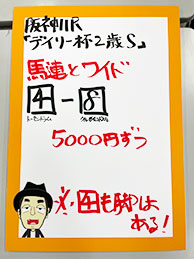 阪神11R
『デイリー杯2歳S』
馬連とワイド
4-8
5000円ずつ
※4も脚は
ある！